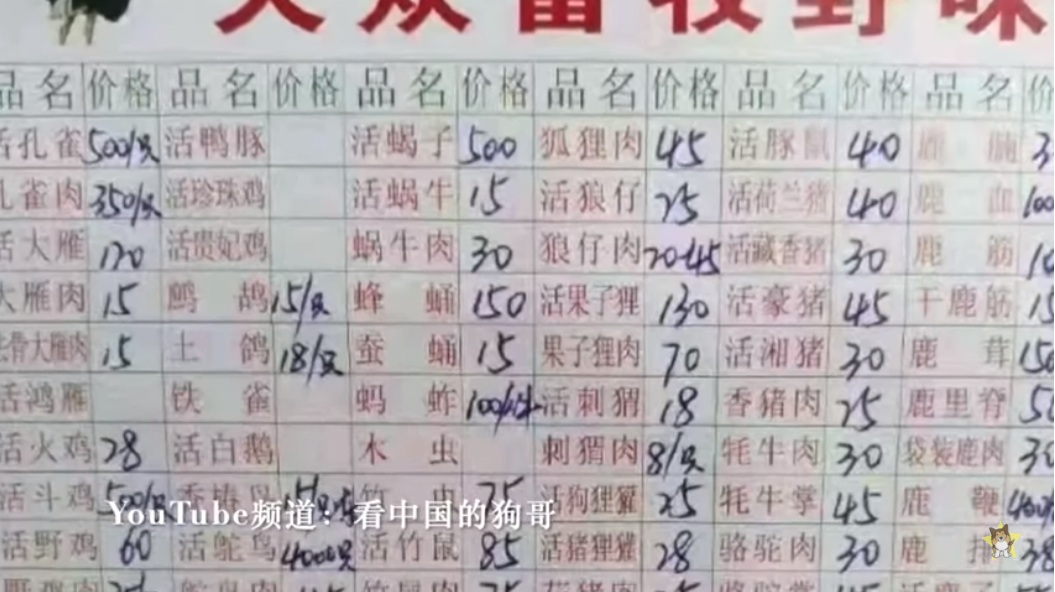 大众畜牧野味
品名 价格 品名 价格 品名 价格 品名 价格 品名 价格 品名 价
活孔雀 500/只 活鸭豚 活蝎子 500 狐狸肉 45 活豚鼠 40 鹿
孔雀肉 350/只 活珍珠鸡 活蜗牛 15 活狼仔 25 活荷兰猪 40 鹿血 100
活大雁 120 活贵妃鸡 蜗牛肉 30 狼仔肉 70-45 活藏香猪 30 鹿筋
大雁肉 15 鹧鸪 15/只 蜂蛹 150 活果子狸 130 活豪猪 45 干鹿筋
去骨大雁肉 15 土鸽 18/只 蚕蛹 15 果子狸肉 70 活湘猪 30 鹿茸 150
活鸿雁 铁雀 蚂蚱 活刺猬 18 香猪肉 25 鹿里脊
活火鸡 28 活白鹅 木虫 刺猬肉 8/只 牦牛肉 30 袋装鹿肉 30
活斗鸡 竹虫 75 活狗狸獾 25 牦牛掌 45 鹿鞭
活野鸡 60 活鸵鸟 4000只 活竹鼠 85 活猪狸獾 28 骆驼肉 30 鹿排 38
YouTube频道：看中国的狗哥